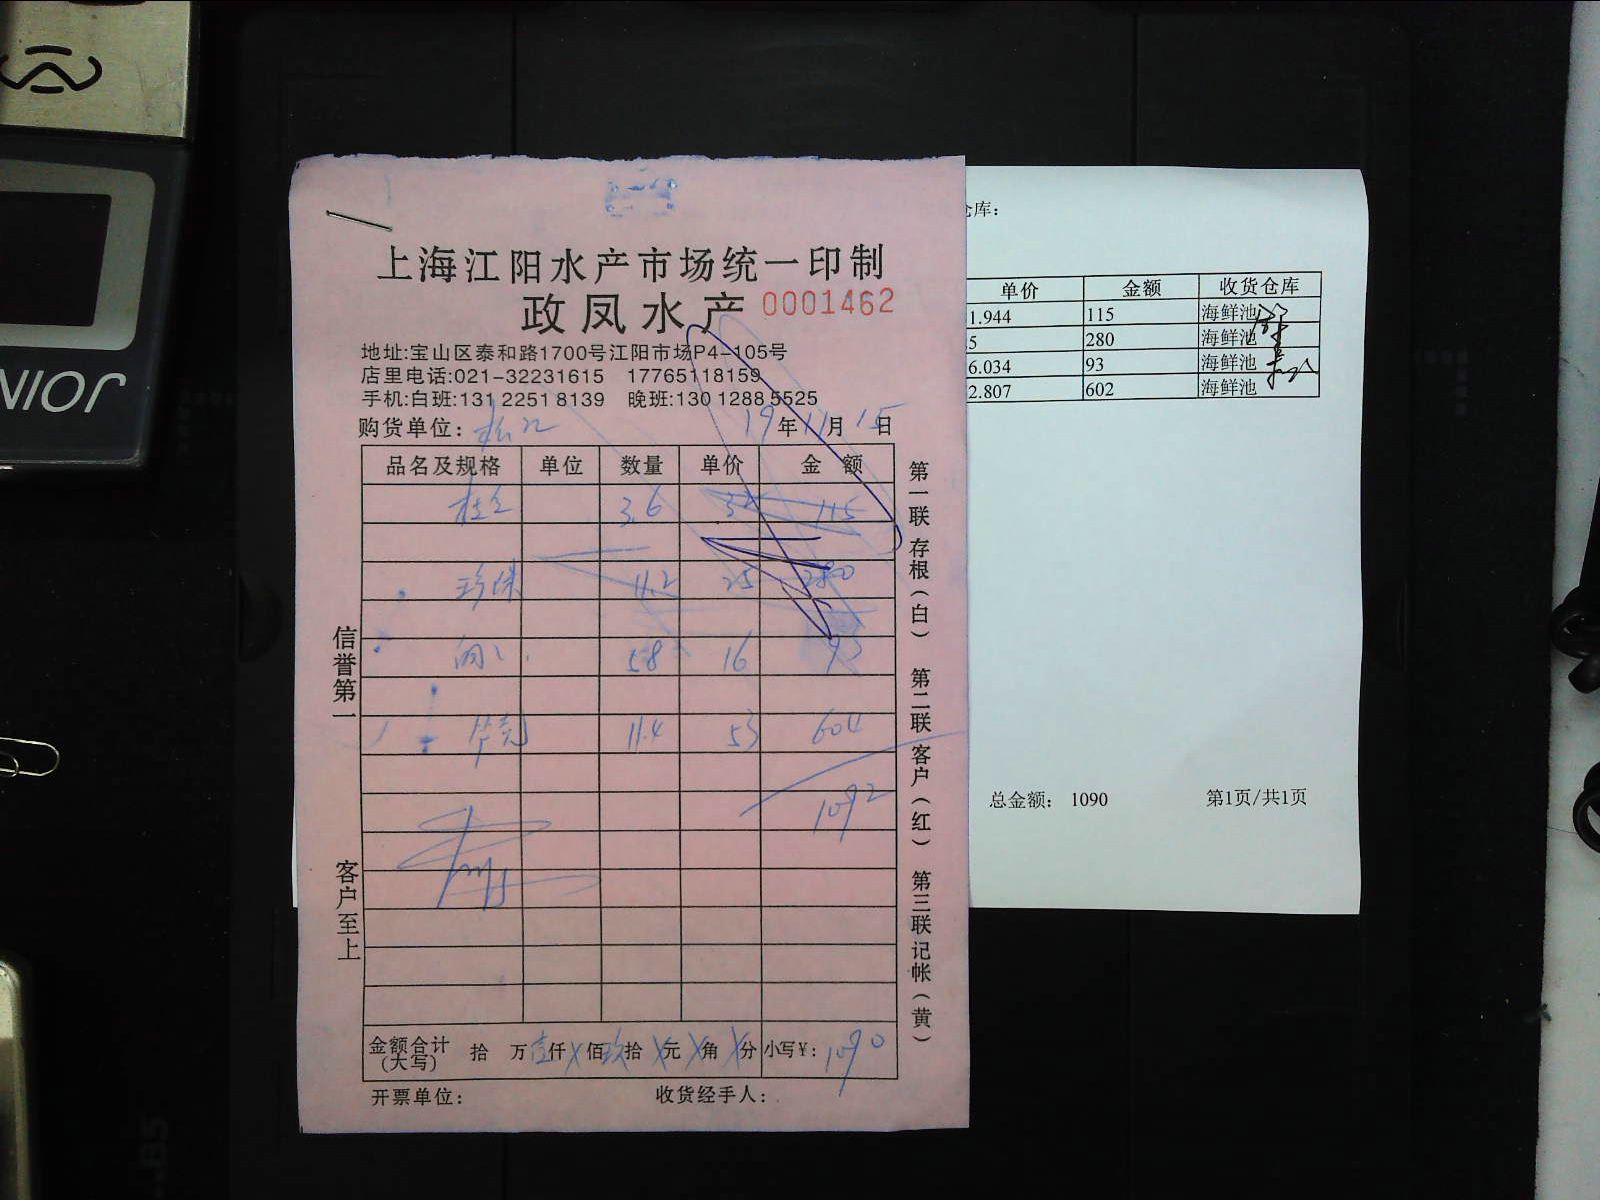 上海江阳水产市场统一印制
政凤水产 0001462
地址:宝山区泰和路1700号江阳市场P4-105号
店里电话:021-32231615 17765118159
手机:白班:131 2251 8139 晚班:130 1288 5525
购货单位: 松江 19年11月15日
品名及规格 单位 数量 单价 金额
3.6 32 115
珍珠 11.2 25 280
5.8 16 93
11.4 53 604
1092
金额合计(大写) 拾 万壹仟X佰玖拾X元X角X分 小写¥: 1090
开票单位: 收货经手人:
信誉第一 客户至上
第一联 存根(白) 第二联 客户(红) 第三联 记帐(黄)
仓库:
单价 金额 收货仓库
1.944 115 海鲜池
5 280 海鲜池
6.034 93 海鲜池
2.807 602 海鲜池
总金额: 1090 第1页/共1页